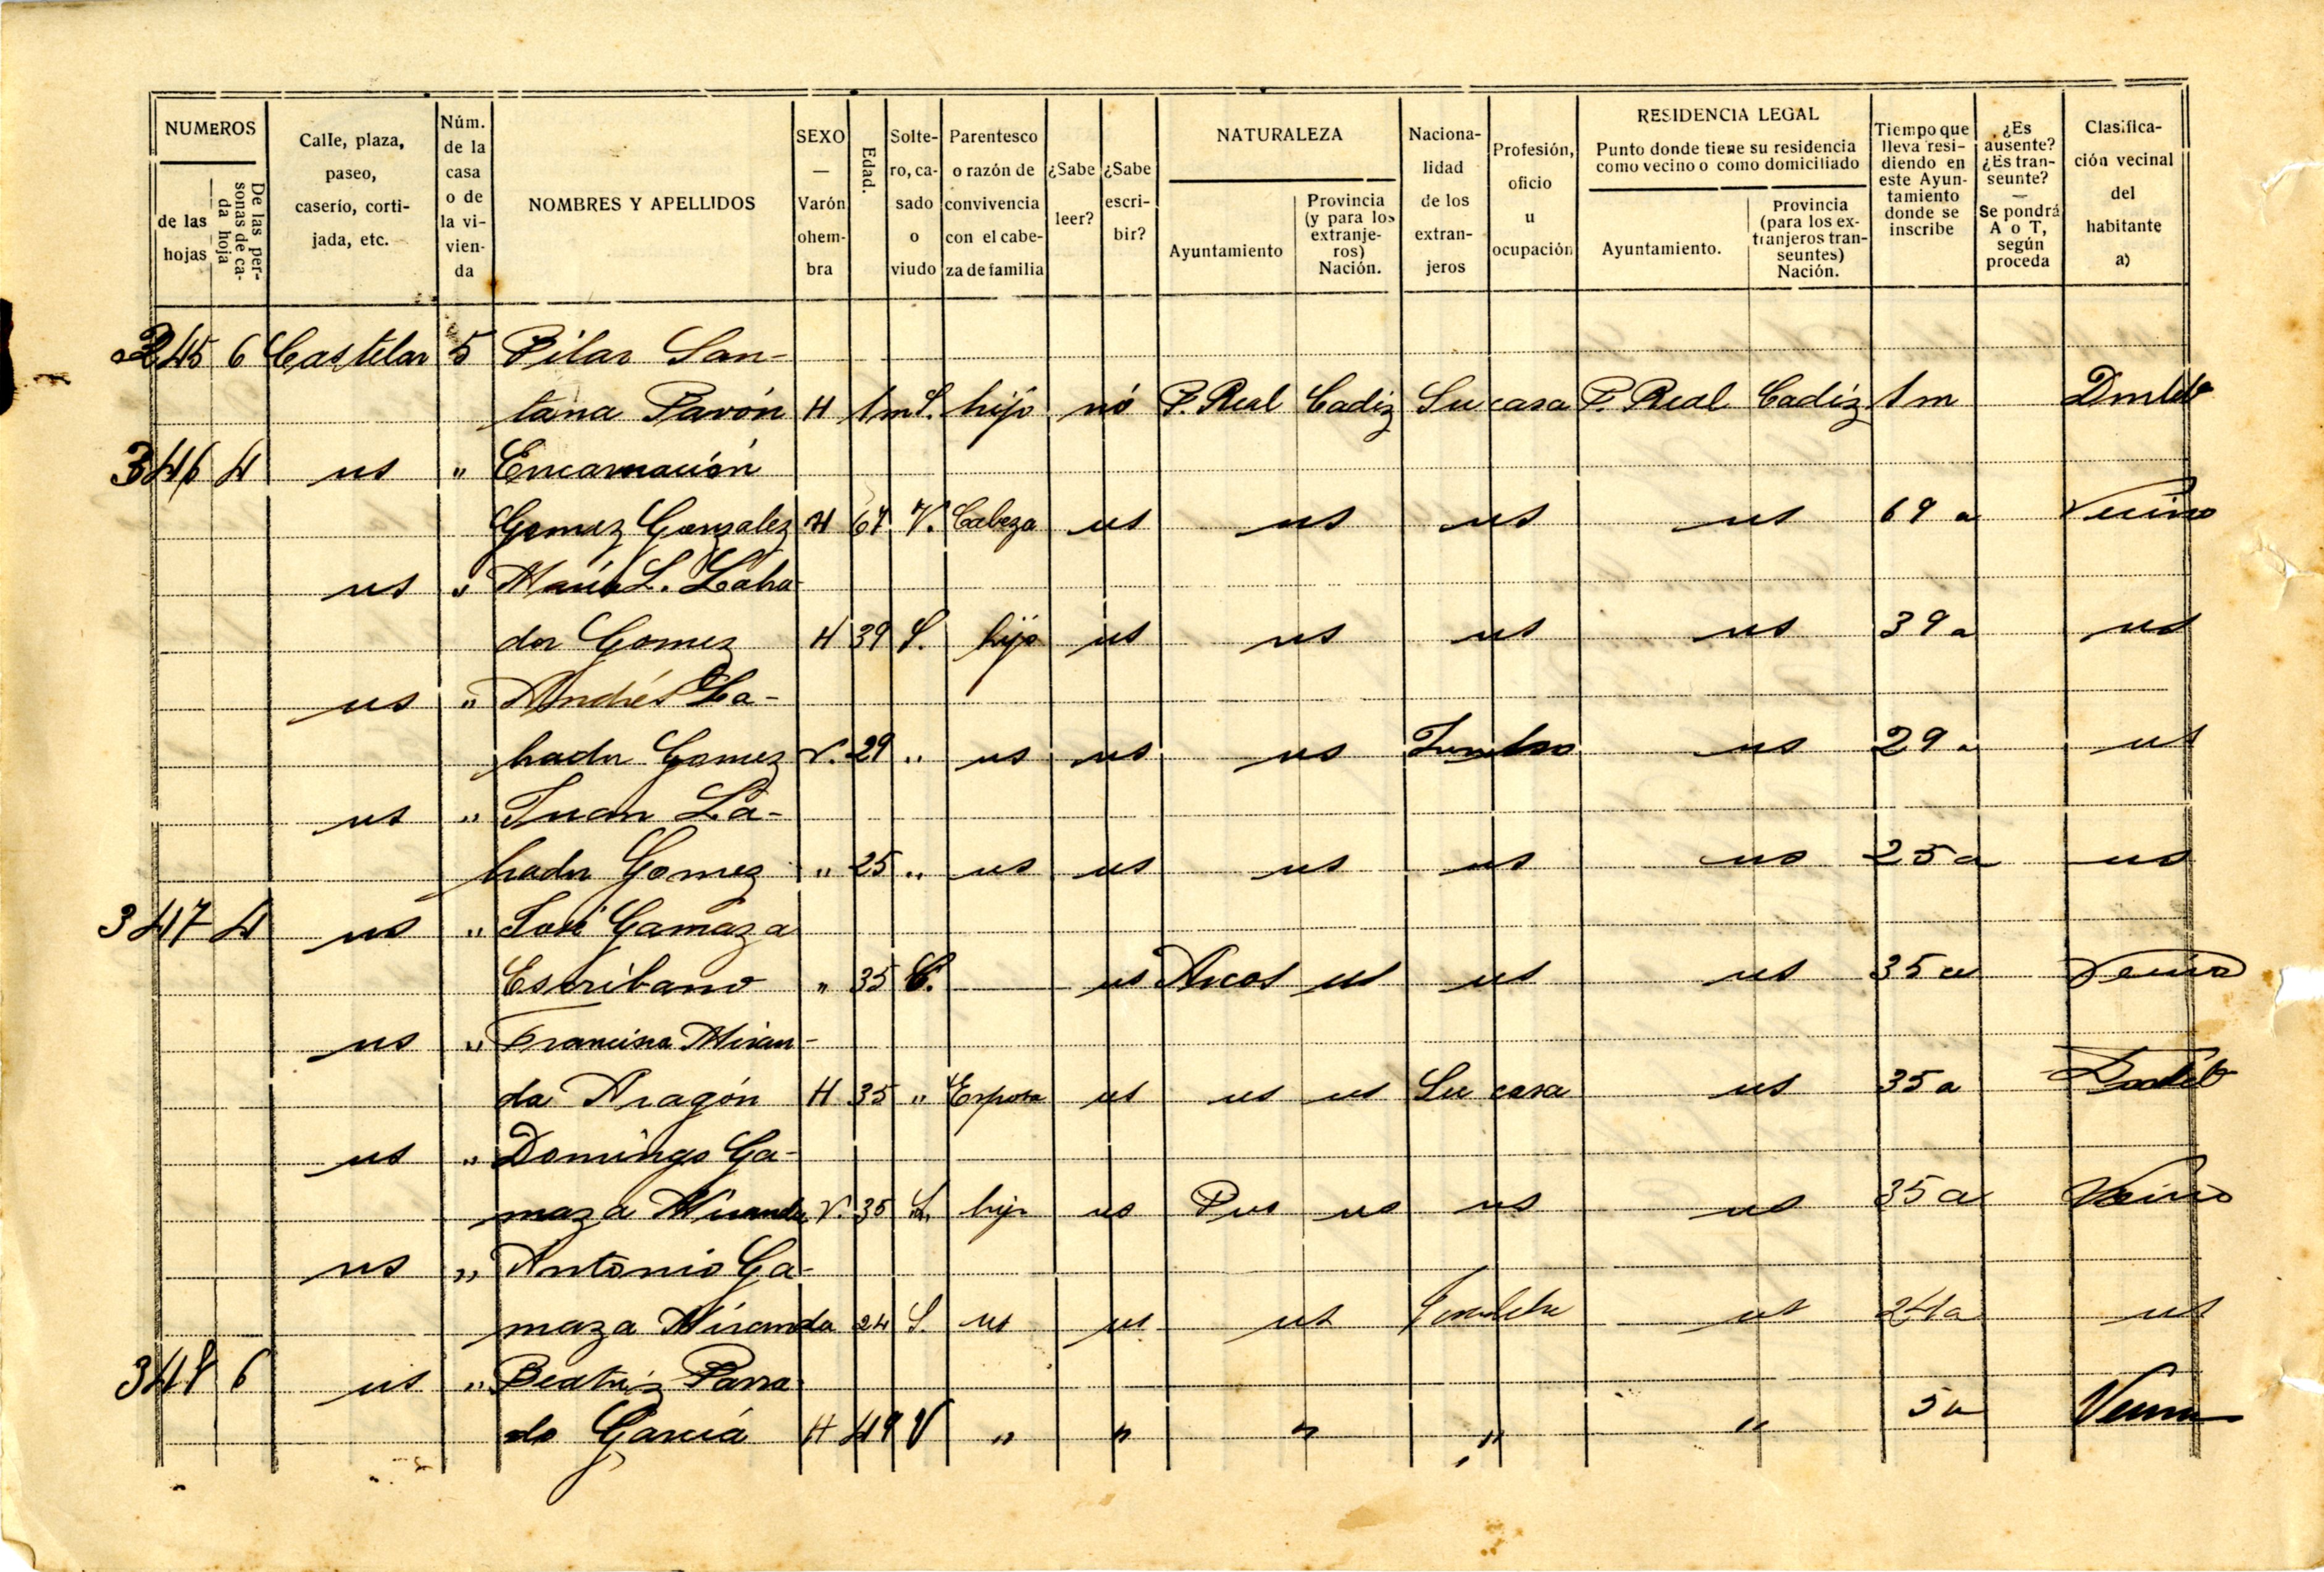 NUMEROS
de las hojas
De las personas de cada hoja
Calle, plaza, paseo, caserio, cortijada, etc.
Núm. de la casa o de la vivienda
NOMBRES Y APELLIDOS
SEXO — Varón ohembra
Edad.
Soltero, casado o viudo
Parentesco o razón de convivencia con el cabeza de familia
¿Sabe leer?
¿Sabe escribir?
NATURALEZA
Ayuntamiento
Provincia (y para los extranjeros) Nación.
Nacionalidad de los extranjeros
Profesión, oficio u ocupación
RESIDENCIA LEGAL
Punto donde tiene su residencia como vecino o como domiciliado
Ayuntamiento.
Provincia (para los extranjeros transeuntes) Nación.
Tiempo que lleva residiendo en este Ayuntamiento donde se inscribe
¿Es ausente? ¿Es transeunte? — Se pondrá A o T, según proceda
Clasificación vecinal del habitante a)
345 6 Castelar 5 Pilar San-
tana Pavón H 1m S. hija nó P. Real Cadiz Su casa P. Real Cadiz 1m
346 4 us " Encarnación
Gomez Gonzalez H V. Cabeza us us us us 69 a Vecino
us " María L. Laha
dor Gomez H 39 S. hija us us us us 39 a us
us " Andrés La-
hador Gomez V. 29 " us us us us 29 a us
us " Juan La-
hador Gomez " 25 " us us us us us 25 a us
347 4 us " José Gamaza
Escribano " 35 C. us Arcos us us us 35 a Vecino
us " Francisca Miran-
da Aragón H 35 " Esposa us us us Su casa us 35 a
us " Domingo Ga-
maza Miranda V. 35 S. hijo us us us us 35 a Vecino
us " Antonio Ga-
maza Miranda 24 S. us us us us 24 a us
348 6 us " Beatriz Parra
do García H 49 V " " " " " 5 a Vecino